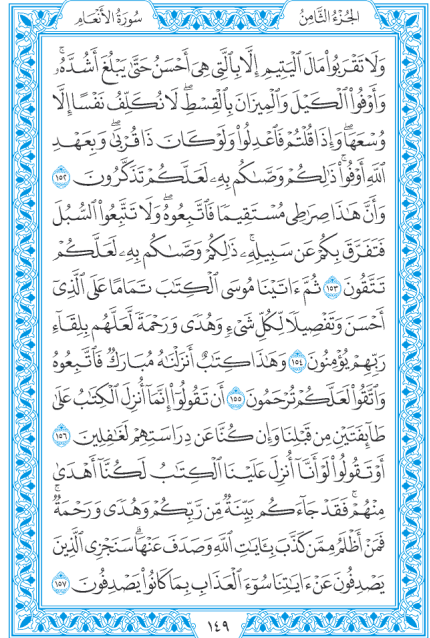 الجُزْءُ الثَّامِنُ
سُورَةُ الأَنْعَامِ
وَلَا تَقْرَبُوا۟ مَالَ ٱلْيَتِيمِ إِلَّا بِٱلَّتِى هِىَ أَحْسَنُ حَتَّىٰ يَبْلُغَ أَشُدَّهُۥۚ
وَأَوْفُوا۟ ٱلْكَيْلَ وَٱلْمِيزَانَ بِٱلْقِسْطِۖ لَا نُكَلِّفُ نَفْسًا إِلَّا
وُسْعَهَاۖ وَإِذَا قُلْتُمْ فَٱعْدِلُوا۟ وَلَوْ كَانَ ذَا قُرْبَىٰۖ وَبِعَهْدِ
ٱللَّهِ أَوْفُوا۟ۚ ذَٰلِكُمْ وَصَّىٰكُم بِهِۦ لَعَلَّكُمْ تَذَكَّرُونَ ١٥٢
وَأَنَّ هَٰذَا صِرَٰطِى مُسْتَقِيمًا فَٱتَّبِعُوهُۖ وَلَا تَتَّبِعُوا۟ ٱلسُّبُلَ
فَتَفَرَّقَ بِكُمْ عَن سَبِيلِهِۦۚ ذَٰلِكُمْ وَصَّىٰكُم بِهِۦ لَعَلَّكُمْ
تَتَّقُونَ ١٥٣ ثُمَّ ءَاتَيْنَا مُوسَى ٱلْكِتَٰبَ تَمَامًا عَلَى ٱلَّذِىٓ
أَحْسَنَ وَتَفْصِيلًا لِّكُلِّ شَىْءٍ وَهُدًى وَرَحْمَةً لَّعَلَّهُم بِلِقَآءِ
رَبِّهِمْ يُؤْمِنُونَ ١٥٤ وَهَٰذَا كِتَٰبٌ أَنزَلْنَٰهُ مُبَارَكٌ فَٱتَّبِعُوهُ
وَٱتَّقُوا۟ لَعَلَّكُمْ تُرْحَمُونَ ١٥٥ أَن تَقُولُوٓا۟ إِنَّمَآ أُنزِلَ ٱلْكِتَٰبُ عَلَىٰ
طَآئِفَتَيْنِ مِن قَبْلِنَا وَإِن كُنَّا عَن دِرَاسَتِهِمْ لَغَٰفِلِينَ ١٥٦
أَوْ تَقُولُوا۟ لَوْ أَنَّآ أُنزِلَ عَلَيْنَا ٱلْكِتَٰبُ لَكُنَّآ أَهْدَىٰ
مِنْهُمْۚ فَقَدْ جَآءَكُم بَيِّنَةٌ مِّن رَّبِّكُمْ وَهُدًى وَرَحْمَةٌۚ
فَمَنْ أَظْلَمُ مِمَّن كَذَّبَ بِـَٔايَٰتِ ٱللَّهِ وَصَدَفَ عَنْهَاۗ سَنَجْزِى ٱلَّذِينَ
يَصْدِفُونَ عَنْ ءَايَٰتِنَا سُوٓءَ ٱلْعَذَابِ بِمَا كَانُوا۟ يَصْدِفُونَ ١٥٧
١٤٩